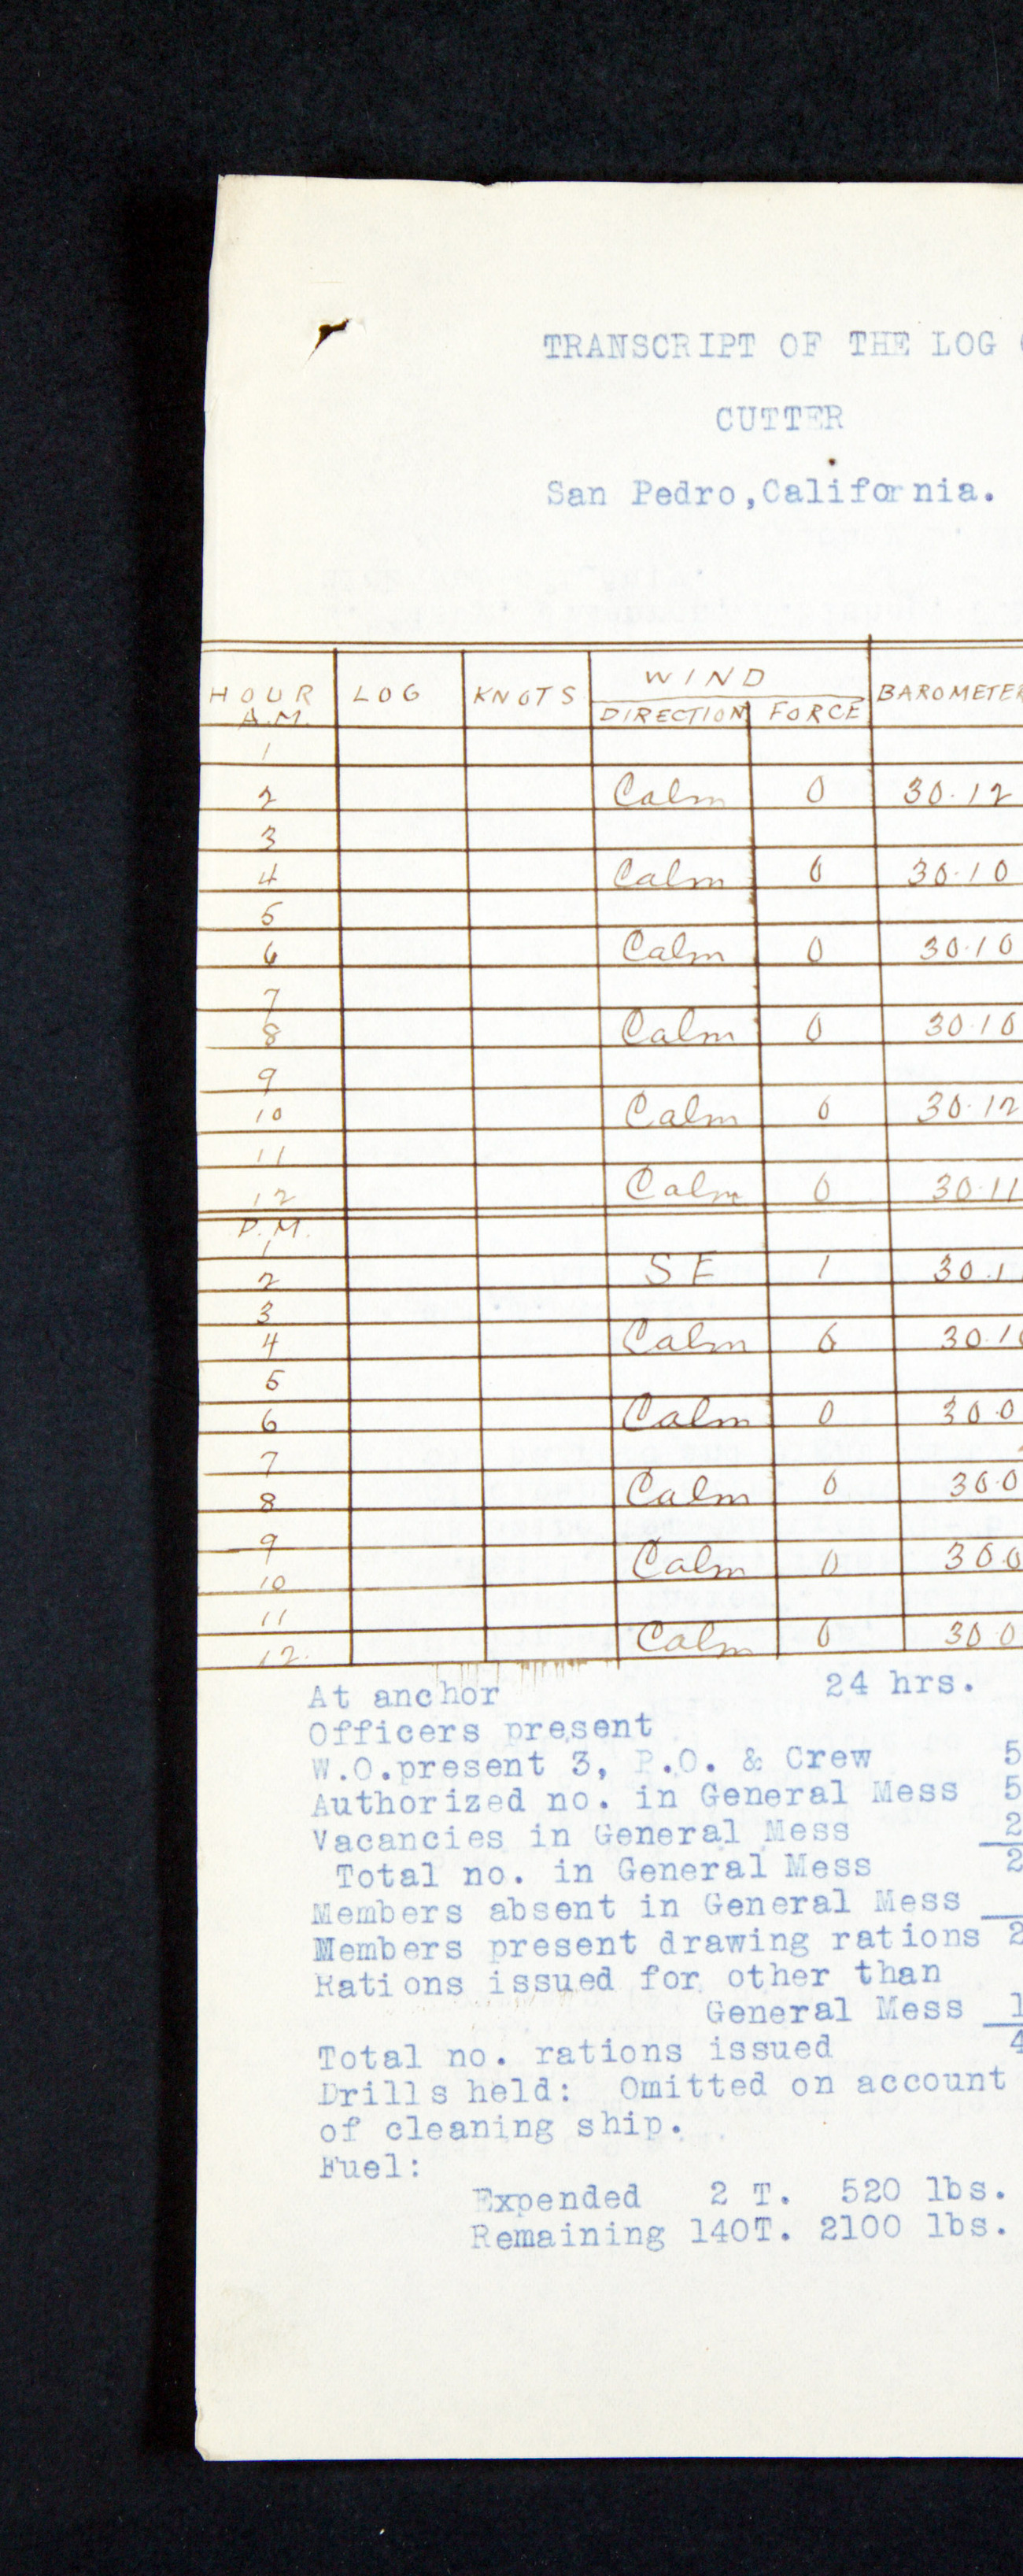 TRANSCRIPT OF THE LOG
CUTTER
San Pedro,California.
WIND
HOUR LOG KNOTS DIRECTION FORCE BAROMETER
A.M.
1
2 Calm 0 30.12
3
4 Calm 0 30.10
5
6 Calm 0 30.10
7
8 Calm 0 30.10
9
10 Calm 0 30.12
11
12 Calm 0 30.11
P.M.
1
2 SE 1 30.1
3
4 Calm 0 30.10
5
6 Calm 0 30.0
7
8 Calm 0 30.0
9
10 Calm 0 30.0
11
12 Calm 0 30.0
At anchor 24 hrs.
Officers present
W.O.present 3, P.O. & Crew 5
Authorized no. in General Mess 5
Vacancies in General Mess 2
Total no. in General Mess 2
Members absent in General Mess
Members present drawing rations 2
Rations issued for other than
General Mess 1
Total no. rations issued 4
Drills held: Omitted on account
of cleaning ship.
Fuel:
Expended 2 T. 520 lbs.
Remaining 140T. 2100 lbs.